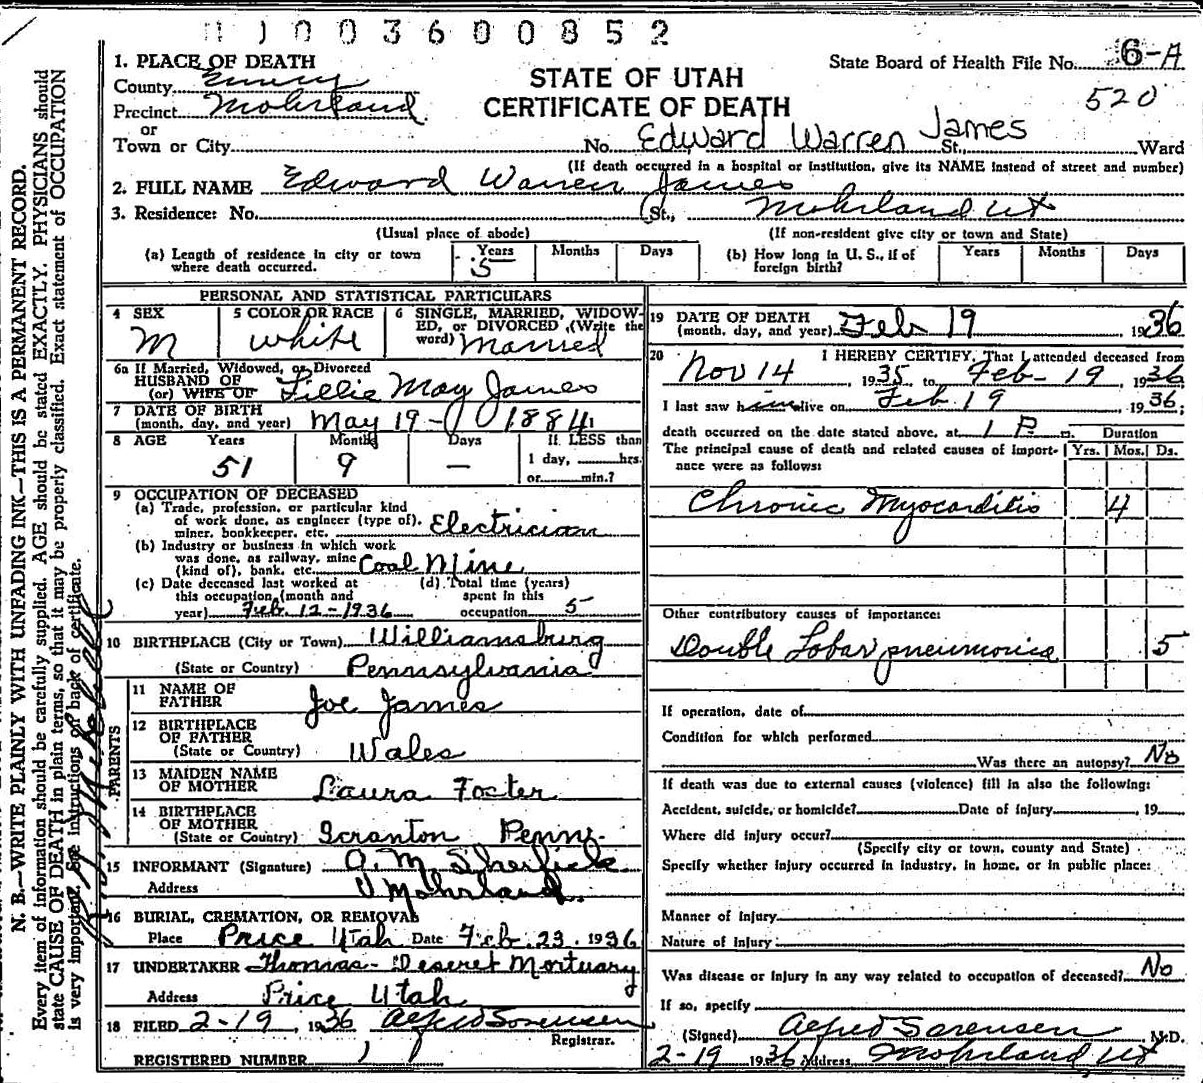 1003600852
1. PLACE OF DEATH
County Emery
Precinct Mohrland
or
Town or City
STATE OF UTAH
CERTIFICATE OF DEATH
State Board of Health File No. 6-A
520
No. Edward Warren James St. Ward
(If death occurred in a hospital or institution, give its NAME instead of street and number)
2. FULL NAME Edward Warren James
3. Residence: No. (St., Mohrland Ut
(Usual place of abode) (If non-resident give city or town and State)
(a) Length of residence in city or town where death occurred. Years 5 Months Days
(b) How long in U. S., if of foreign birth? Years Months Days
PERSONAL AND STATISTICAL PARTICULARS
4 SEX M
5 COLOR OR RACE white
6 SINGLE, MARRIED, WIDOWED, or DIVORCED (Write the word) Married
6a If Married, Widowed, or Divorced
HUSBAND OF
(or) WIFE OF Lillie May James
7 DATE OF BIRTH
(month, day, and year) May 19 - 1884
8 AGE Years 51 Months 9 Days — If LESS than 1 day, hrs. or min.?
9 OCCUPATION OF DECEASED
(a) Trade, profession, or particular kind
of work done, as engineer (type of),
miner, bookkeeper, etc. Electrician
(b) Industry or business in which work
was done, as railway, mine
(kind of), bank, etc. Coal Mine
(c) Date deceased last worked at
this occupation (month and
year) Feb. 12 - 1936
(d) Total time (years)
spent in this
occupation 5
10 BIRTHPLACE (City or Town) Williamsburg
(State or Country) Pennsylvania
PARENTS
11 NAME OF
FATHER Joe James
12 BIRTHPLACE
OF FATHER
(State or Country) Wales
13 MAIDEN NAME
OF MOTHER Laura Foster
14 BIRTHPLACE
OF MOTHER
(State or Country) Scranton Penn.
15 INFORMANT (Signature) A. M. Sherlick
Address Mohrland
16 BURIAL, CREMATION, OR REMOVAL
Place Price Utah Date Feb. 23. 1936
17 UNDERTAKER Thomas - Deseret Mortuary
Address Price Utah
18 FILED 2-19, 1936 Alfred Sorensen
Registrar.
REGISTERED NUMBER 1
19 DATE OF DEATH
(month, day, and year) Feb 19 1936
20 I HEREBY CERTIFY, That I attended deceased from
Nov 14, 1935 to Feb - 19, 1936
I last saw him alive on Feb 19, 1936;
death occurred on the date stated above, at 1 P. m. Duration
The principal cause of death and related causes of importance were as follows: Yrs. Mos. Ds.
Chronic Myocarditis 4
Other contributory causes of importance:
Double Lobar pneumonia 5
If operation, date of
Condition for which performed
Was there an autopsy? No
If death was due to external causes (violence) fill in also the following:
Accident, suicide, or homicide? Date of injury , 19
Where did injury occur?
(Specify city or town, county and State)
Specify whether injury occurred in industry, in home, or in public place:
Manner of injury
Nature of injury
Was disease or injury in any way related to occupation of deceased? No
If so, specify
(Signed) Alfred Sorensen M.D.
2-19 1936 Address Mohrland, Ut
N. B.—WRITE PLAINLY WITH UNFADING INK—THIS IS A PERMANENT RECORD.
Every item of information should be carefully supplied. AGE should be stated EXACTLY. PHYSICIANS should
state CAUSE OF DEATH in plain terms, so that it may be properly classified. Exact statement of OCCUPATION
is very important. See instructions on back of certificate.